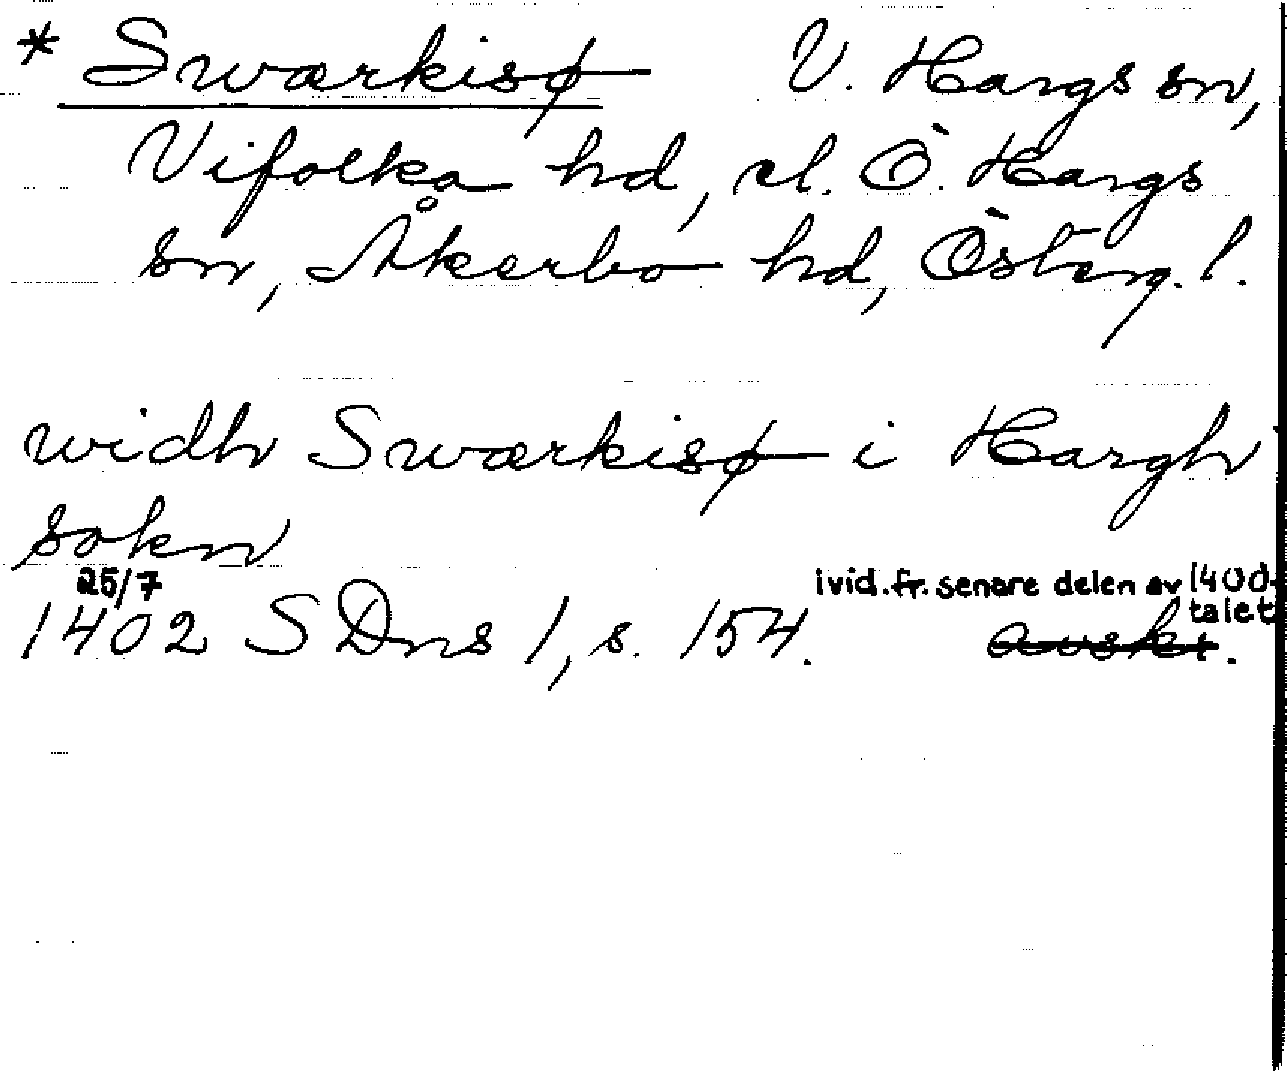 * Swærkisø V. Hargs sn,
Vifolka hd, el. Ö. Hargs
sn, Åkerbo hd, Österg. l.
widh Swærkisø i Hargh
sokn
25/7 ivid. fr. senare delen av 1400-
talet
1402 SDns 1, s. 154. avskr.